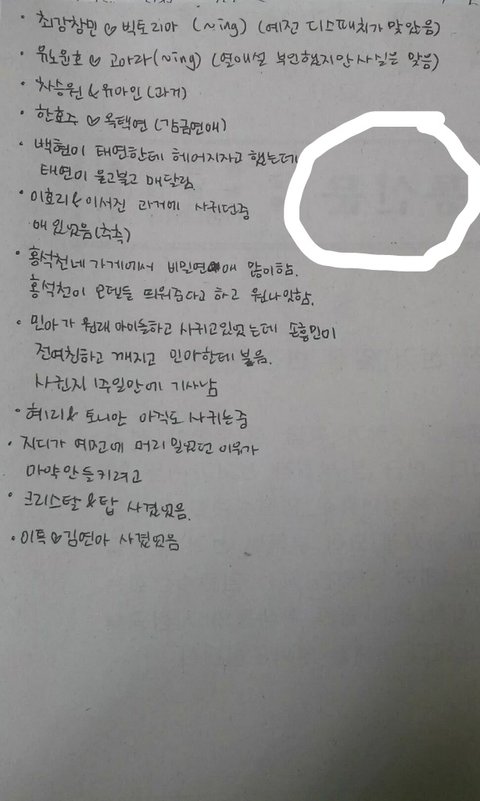 · 최강창민 ♡ 빅토리아 (~ing) (예전 디스패치가 맞았음)
· 유노윤호 ♡ 고아라 (~ing) (열애설 부인했지만 사실은 맞음)
· 차승원 & 유아인 (과거)
· 한효주 ♡ 옥택연 (감금연애)
· 백현이 태연한테 헤어지자고 했는데
태연이 울고불고 매달림
· 이효리 & 이서진 과거에 사귀던중
애 있었음 (추측)
· 홍석천네 가게에서 비밀연애 많이함.
홍석천이 모델들 띄워준다고 하고
· 민아가 원래 아이돌하고 사귀고있었는데 손흥민이
전여친하고 깨지고 민아한테 붙음.
사귄지 1주일만에 기사남
· 혜리 & 토니안 아직도 사귀는중
· 지디가 예전에 머리 밀었던 이유가
마약 안들키려고
· 크리스탈 & 탑 사겼었음.
· 이특 ♡ 김연아 사겼었음